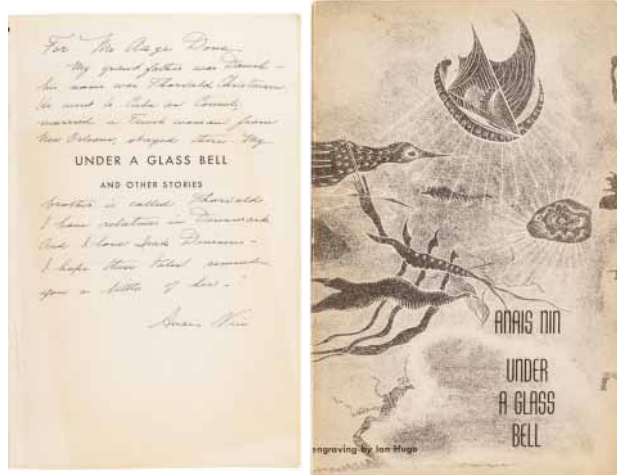 For Mr Aage Dons
My grandfather was Danish –
his name was Thorvald Christensen
He went to Cuba as Consul,
married a French woman from
New Orleans, stayed there. My
UNDER A GLASS BELL
AND OTHER STORIES
brother is called Thorvald
I have relatives in Denmark
And I love Isak Dinesen –
I hope these tales remind
you a little of her –
Anais Nin
ANAIS NIN
UNDER
A GLASS
BELL
engraving by Ian Hugo